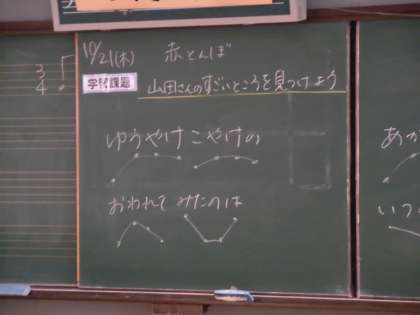 10/21(木) 赤とんぼ
3
4
学習課題 山田さんのすごいところを見つけよう
ゆうやけこやけの
おわれてみたのは
あか
いつ